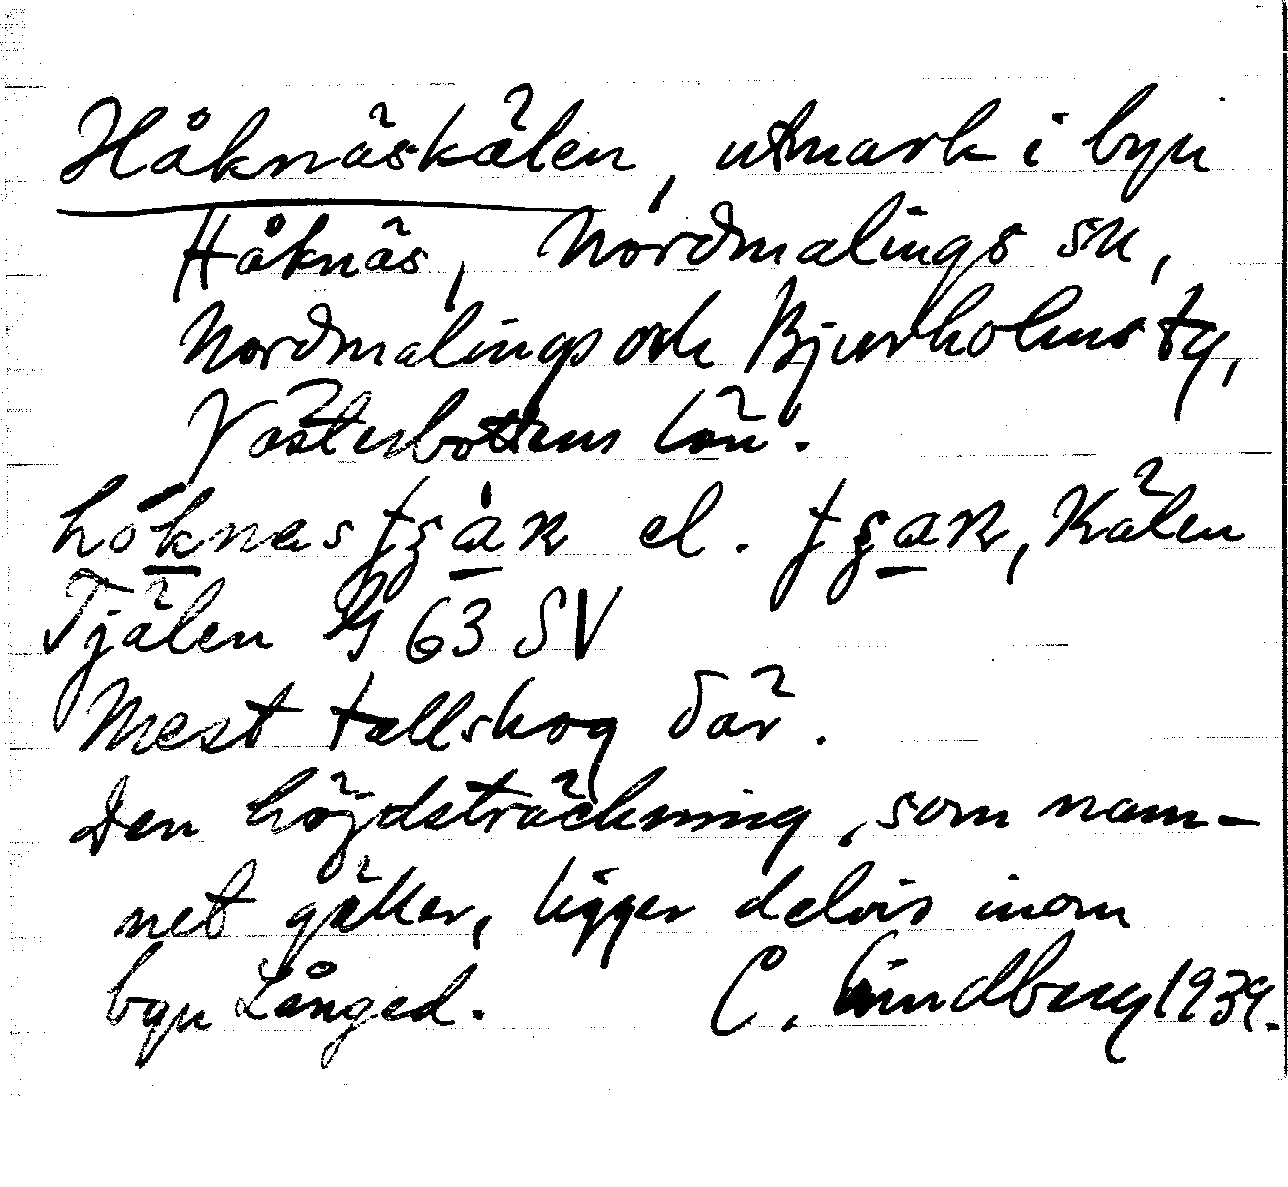 Håknäskälen, utmark i byn
Håknäs, Nordmalings sn,
Nordmalings och Bjurholms tg,
Västerbottens län.
el. Kälen
Tjälen 63 SV
Mest tallskog där.
Den höjdsträckning, som nam-
net gäller, ligger delvis inom
byn Långed. C. Lindberg 1939.